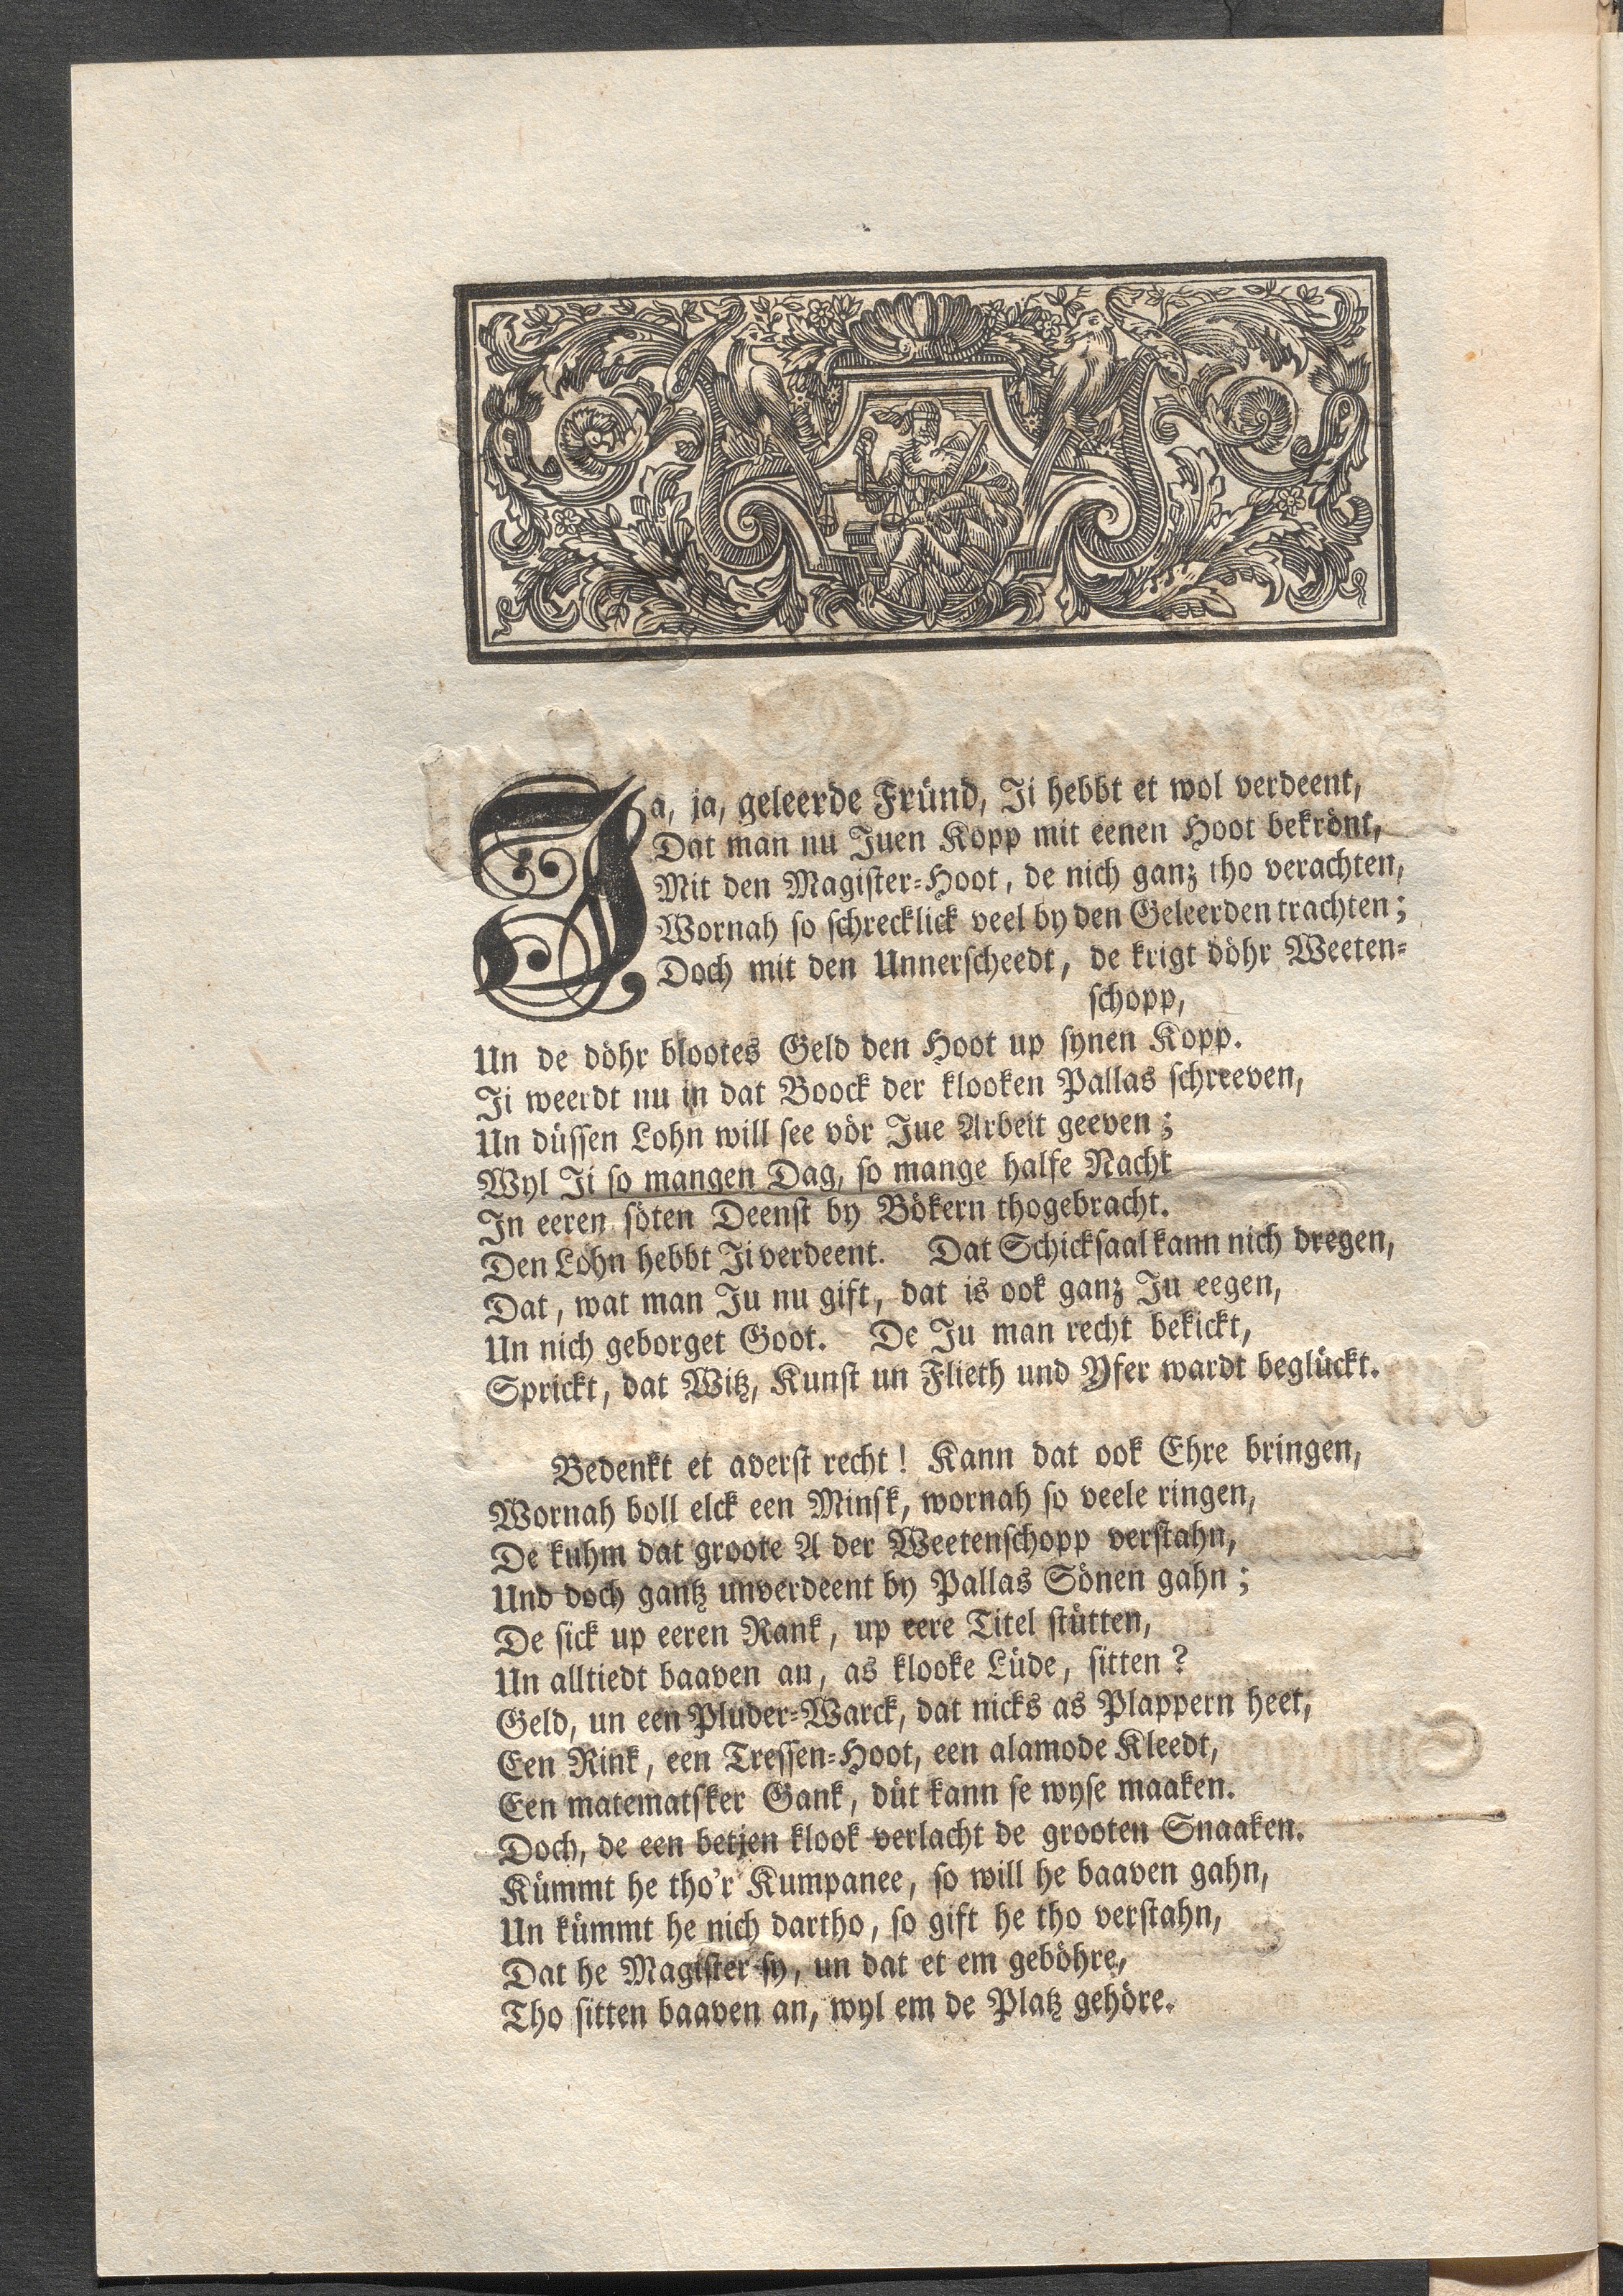 Ja, ja, geleerde Fründ, Ji hebbt et wol verdeent,
Dat man nu Juen Kopp mit eenen Hoot bekrönt,
Mit den Magister-Hoot, de nich ganz tho verachten,
Wornah so schrecklick veel by den Geleerden trachten;
Doch mit den Unnerscheedt, de krigt döhr Weeten-
schopp,
Un de döhr blootes Geld den Hoot up synen Kopp.
Ji weerdt nu in dat Boock der klooken Pallas schreeven,
Un düssen Lohn will see vör Jue Arbeit geeven;
Wyl Ji so mangen Dag, so mange halfe Nacht
In eeren söten Deenst by Bökern thogebracht.
Den Lohn hebbt Ji verdeent. Dat Schicksaal kann nich dregen,
Dat, wat man Ju nu gift, dat is ook ganz Ju eegen,
Un nich geborget Goot. De Ju man recht bekickt,
Sprickt, dat Witz, Kunst un Flieth und Yfer wardt beglückt.
Bedenkt et averst recht! Kann dat ook Ehre bringen,
Wornah boll elck een Minsk, wornah so veele ringen,
De kuhm dat groote A der Weetenschopp verstahn,
Und doch gantz unverdeent by Pallas Sönen gahn;
De sick up eeren Rank, up eere Titel stütten,
Un alltiedt baaven an, as klooke Lüde, sitten?
Geld, un een Pluder-Warck, dat nicks as Plappern heet,
Een Rink, een Tressen-Hoot, een alamode Kleedt,
Een matematsker Gank, düt kann se wyse maaken.
Doch, de een betjen klook verlacht de grooten Snaaken.
Kümmt he tho'r Kumpanee, so will he baaven gahn,
Un kümmt he nich dartho, so gift he tho verstahn,
Dat he Magister sy, un dat et em geböhre,
Tho sitten baaven an, wyl em de Platz gehöre.